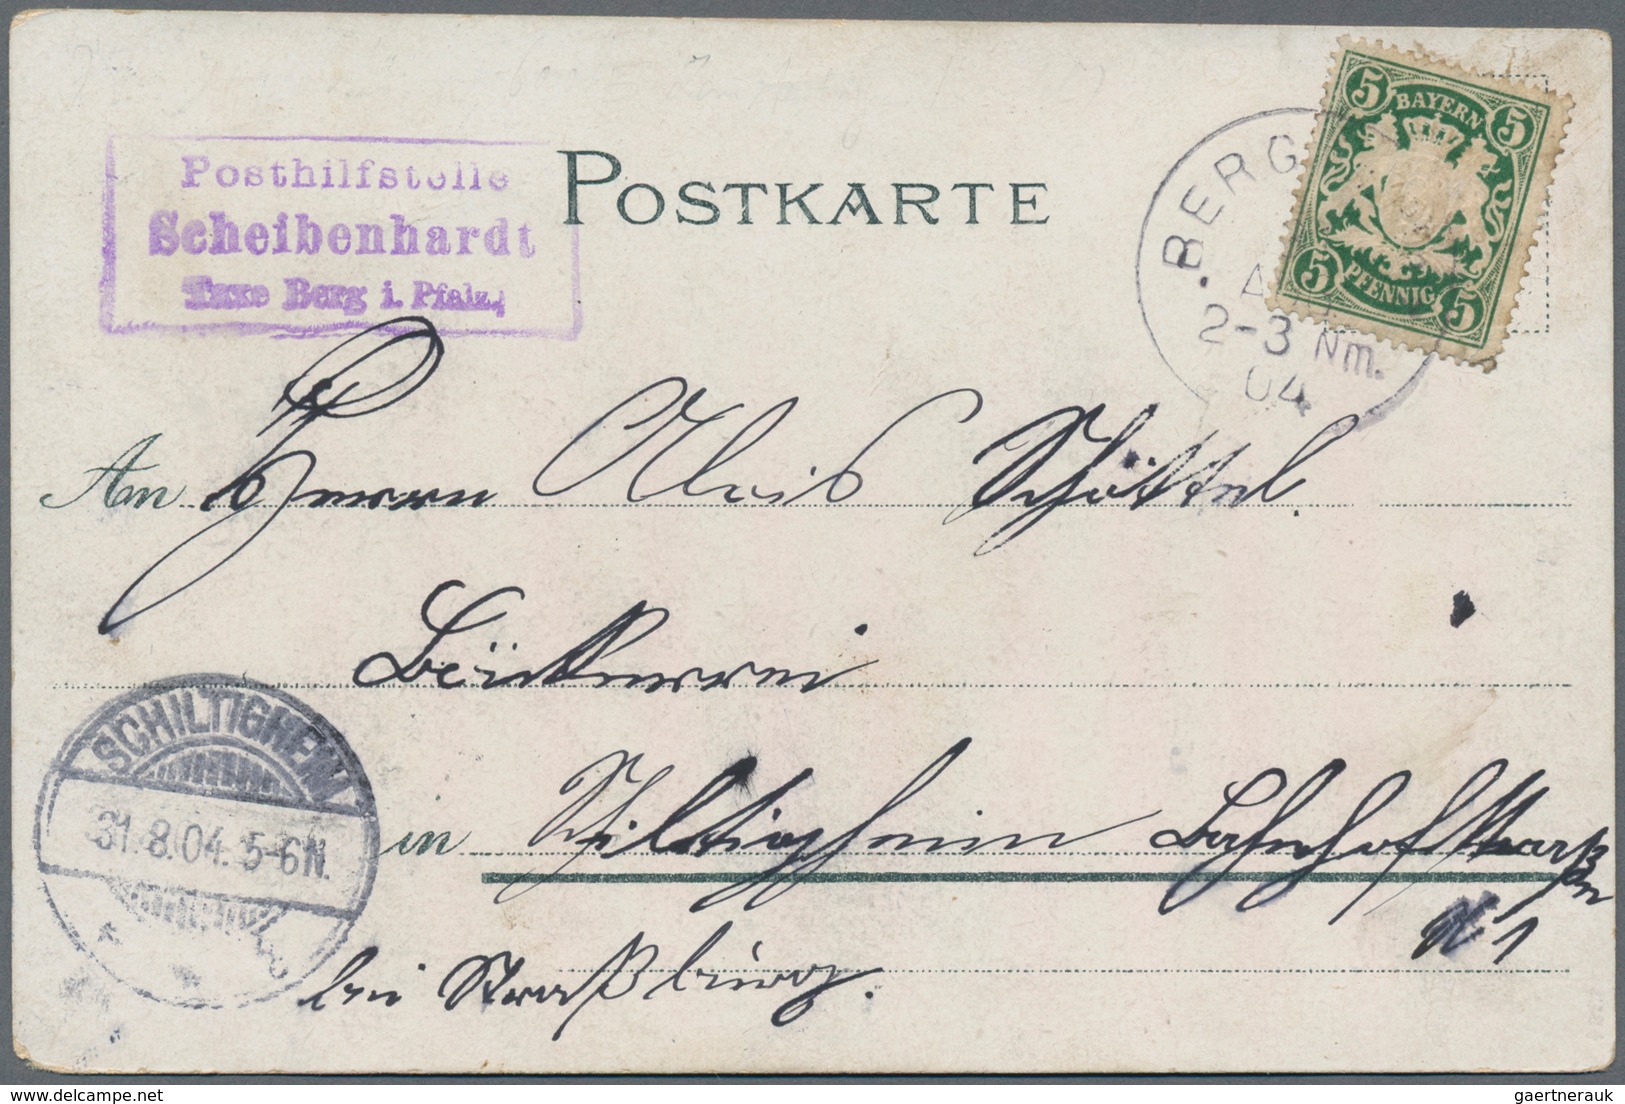 Posthilfstelle
Scheibenhardt
Taxe Berg i. Pfalz.
POSTKARTE
BERG
2-3 Nm.
04
5 BAYERN 5
5 PFENNIG 5
An Herrn Alois Schöttel.
Bäckerei
SCHILTIGHEIM
31.8.04. 5-6N.
in Schiltigheim Bahnhofstraße
N 1
bei Straßburg.
gaertnerauk